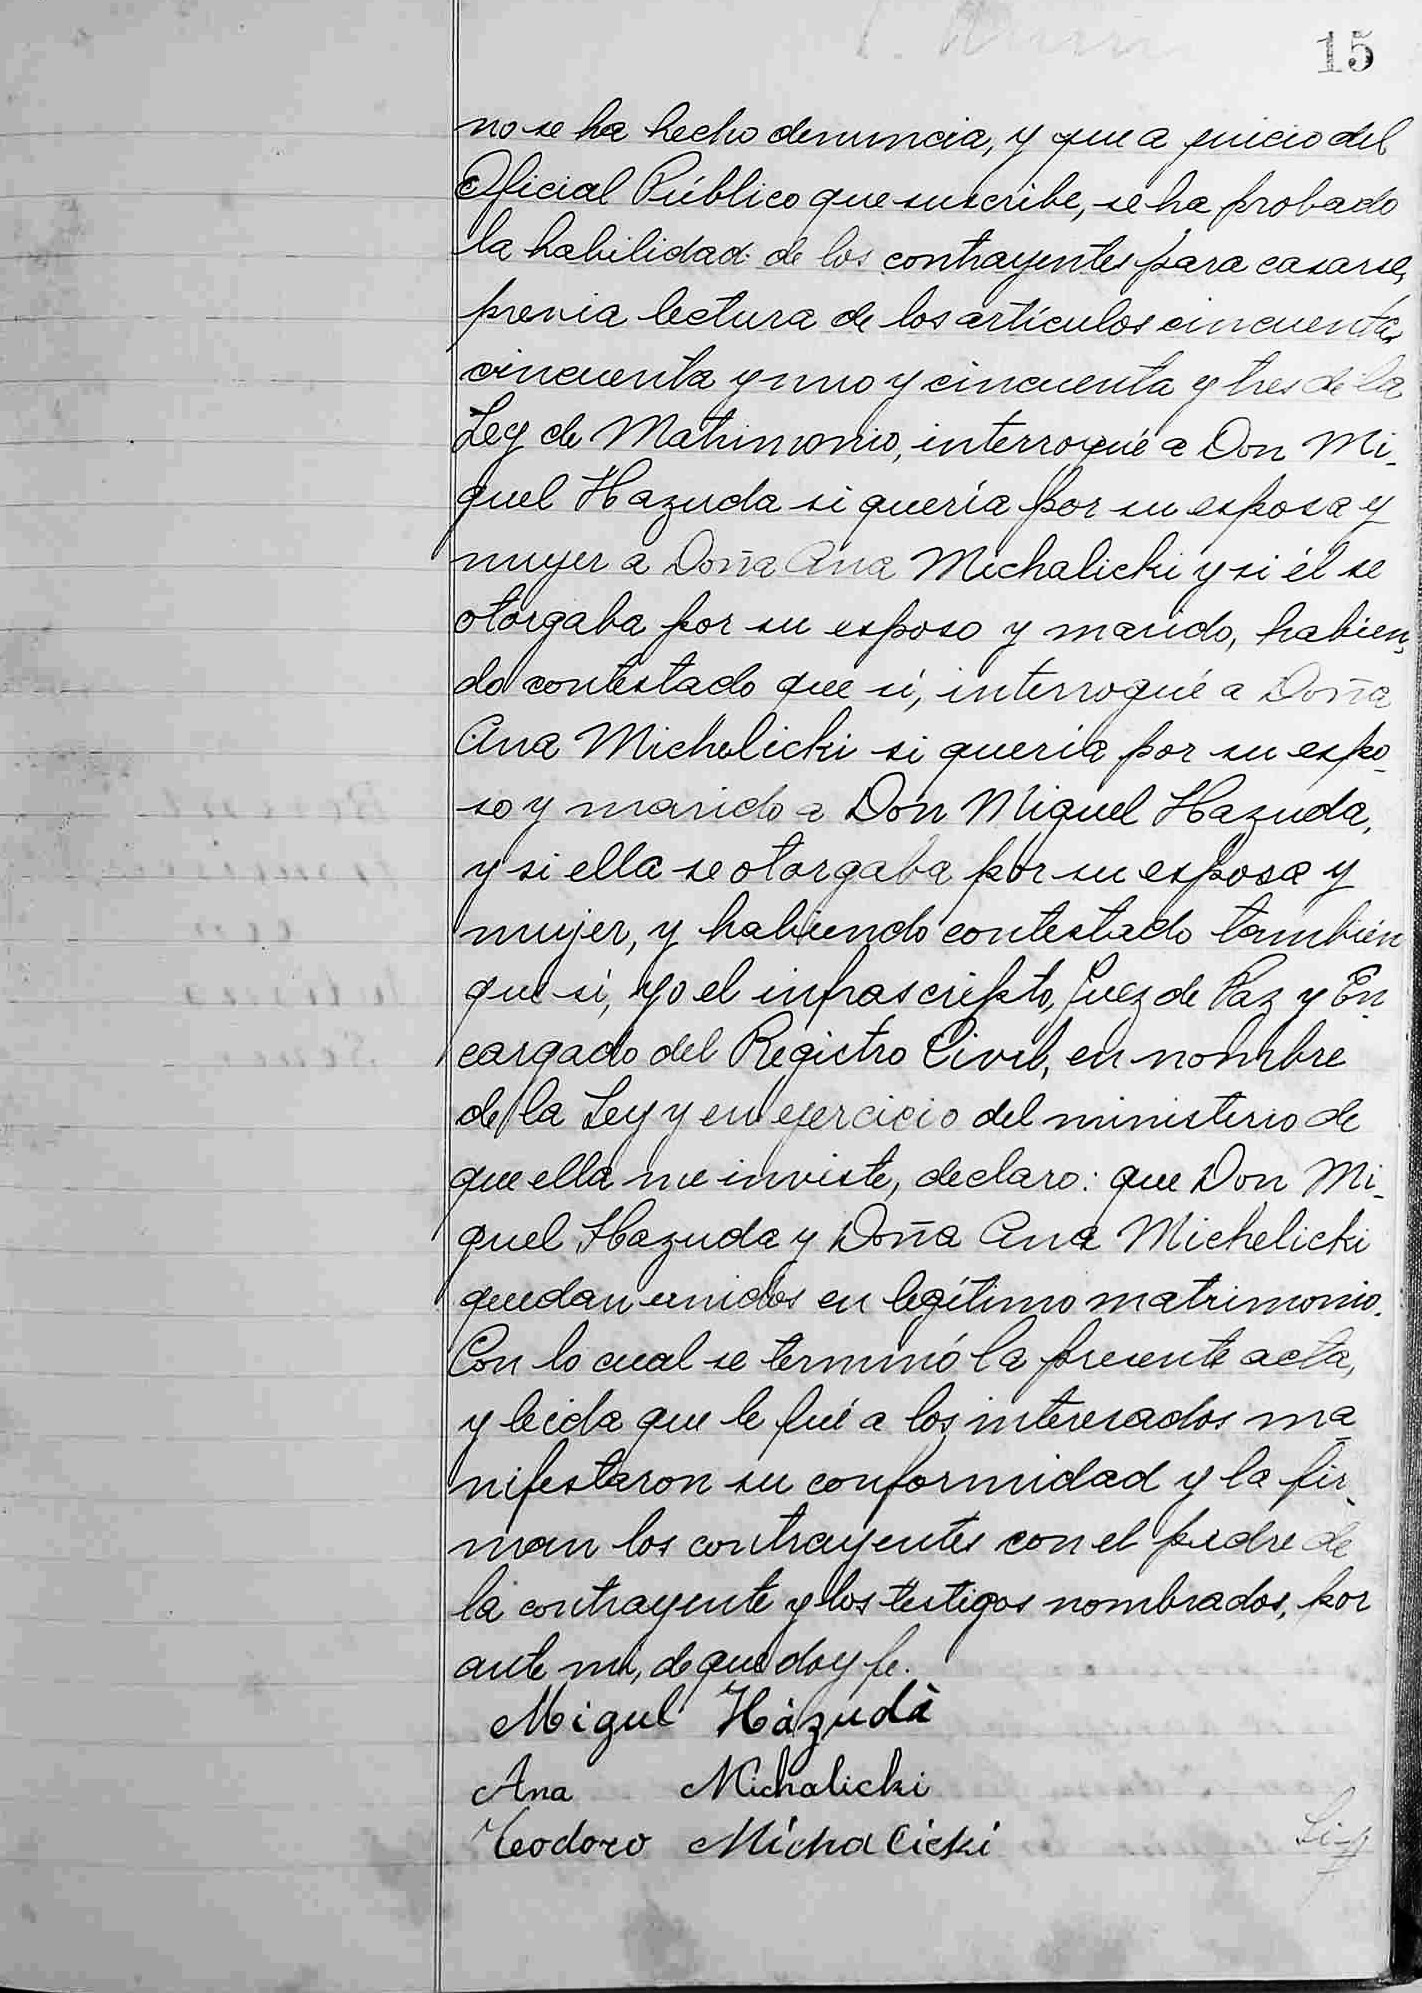 15
no se ha hecho denuncia, y que a juicio del
Oficial Público que suscribe, se ha probado
la habilidad de los contrayentes para casarse,
previa lectura de los artículos cincuenta,
cincuenta y uno y cincuenta y tres de la
Ley de Matrimonio, interrogué a Don Mi-
guel Hazuda si quería por su esposa y
mujer a Doña Ana Michalicki y si él se
otorgaba por su esposo y marido, habien-
do contestado que sí, interrogué a Doña
Ana Michelicki si quería por su espo-
so y marido a Don Miguel Hazuda,
y si ella se otorgaba por su esposa y
mujer, y habiendo contestado también
que sí, yo el infrascripto, Juez de Paz y En-
cargado del Registro Civil, en nombre
de la Ley y en ejercicio del ministerio de
que ella me inviste, declaro: que Don Mi-
guel Hazuda y Doña Ana Michelicki
quedan unidos en legítimo matrimonio.
Con lo cual se terminó la presente acta,
y leida que le fué a los interesados ma-
nifestaron su conformidad y la fir-
man los contrayentes con el padre de
la contrayente y los testigos nombrados, por
ante mi, de que doy fe.
Migul Házudà
Ana Michalicki
Teodoro Michalicki